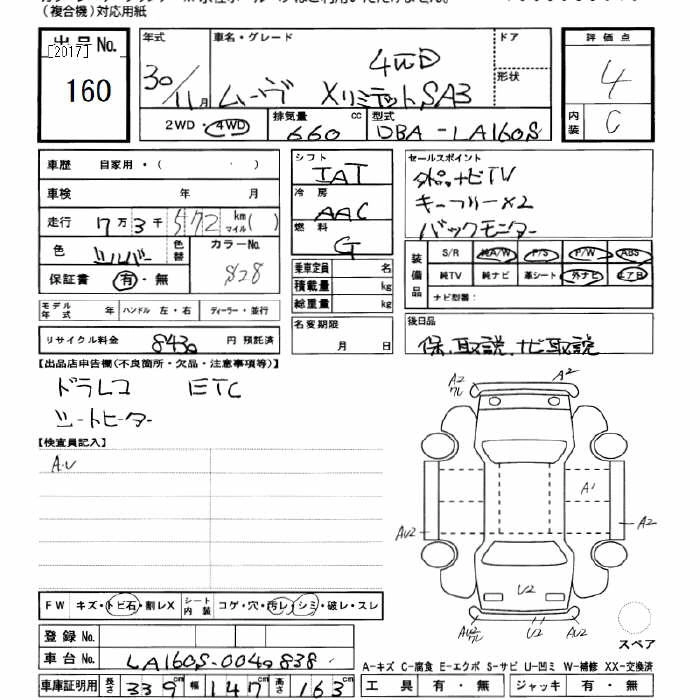 （複合機）対応用紙
出品No.
[2017]
160
年式 車名・グレード ドア
30/11月 ムーヴ XリミテッドSA3 4WD
形状
2WD・4WD 排気量 660 cc 型式 DBA-LA160S
評価点 4
内装 C
車歴 自家用・（ ）
車検 年 月
走行 7万3千572 km マイル( )
色 シルバー 色替 カラーNo. S28
保証書 有・無
シフト IAT
冷房 AAC
燃料 G
乗車定員 名
積載量 kg
総重量 kg
セールスポイント
外ナビTV
キーフリー×2
バックモニター
装備品 S/R 純A/W P/S P/W ABS
純TV 純ナビ 革シート 外ナビ エアB
ナビ型番：
モデル年式 年 ハンドル 左・右 ディーラー・並行
リサイクル料金 8430 円 預託済
名変期限 月 日
後日品
保、取説、ナビ取説
【出品店申告欄(不良箇所・欠品・注意事項等)】
ドラレコ ETC
シートヒーター
【検査員記入】
A.U
A2 ワレ A2
A1
AU2 A2
U2
AU2 ワレ U2 AU2
スペア
FW キズ・トビ石・割レX シート内装 コゲ・穴・汚レ・シミ・破レ・スレ
登録No.
車台No. LA160S-0040838
車庫証明用 長さ 339cm 幅 147cm 高さ 163cm
A-キズ C-腐食 E-エクボ S-サビ U-凹ミ W-補修 XX-交換済
工具 有・無 ジャッキ 有・無